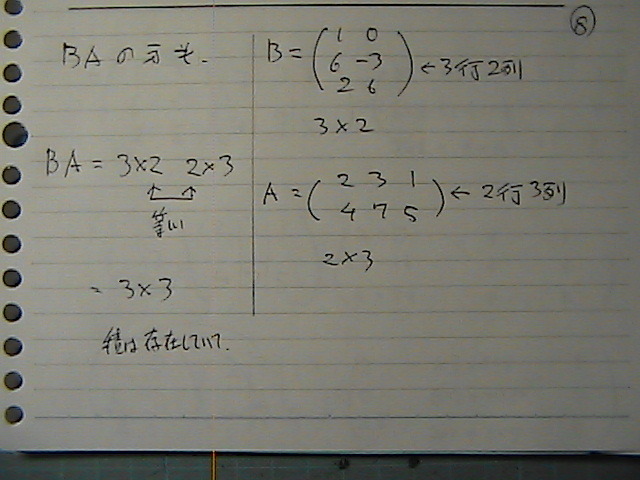 ⑧
BAの方も.
BA = 3×2 2×3
等しい
= 3×3
積は存在していて.
B = (1 0
6 -3
2 6) ←3行2列
3×2
A = (2 3 1
4 7 5) ←2行3列
2×3